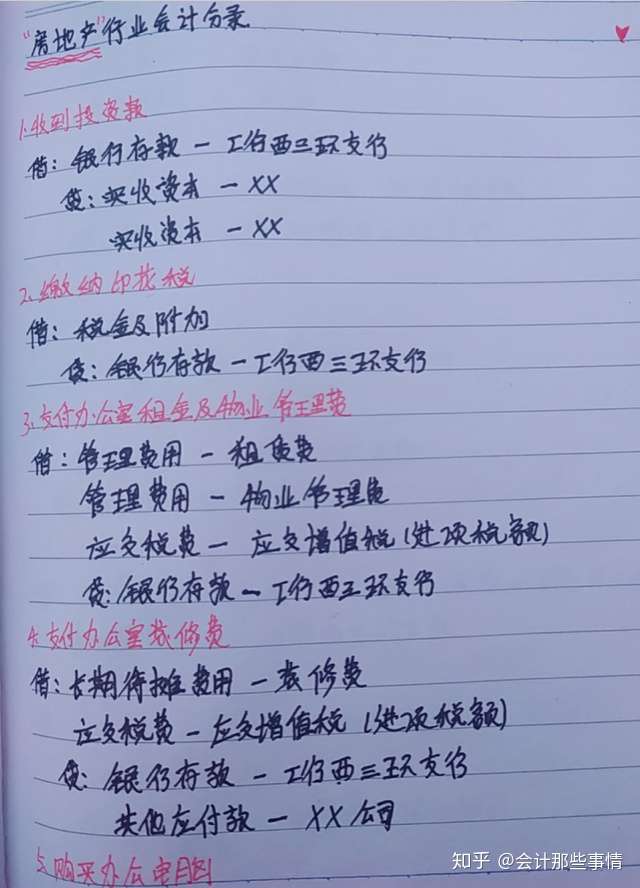 "房地产"行业会计分录
1.收到投资款
借：银行存款－工行西三环支行
贷：实收资本－XX
实收资本－XX
2.缴纳印花税
借：税金及附加
贷：银行存款－工行西三环支行
3.支付办公室租金及物业管理费
借：管理费用－租赁费
管理费用－物业管理费
应交税费－应交增值税(进项税额)
贷：银行存款－工行西三环支行
4.支付办公室装修费
借：长期待摊费用－装修费
应交税费－应交增值税(进项税额)
贷：银行存款－工行西三环支行
其他应付款－XX公司
5.购买办公电脑
知乎 @会计那些事情